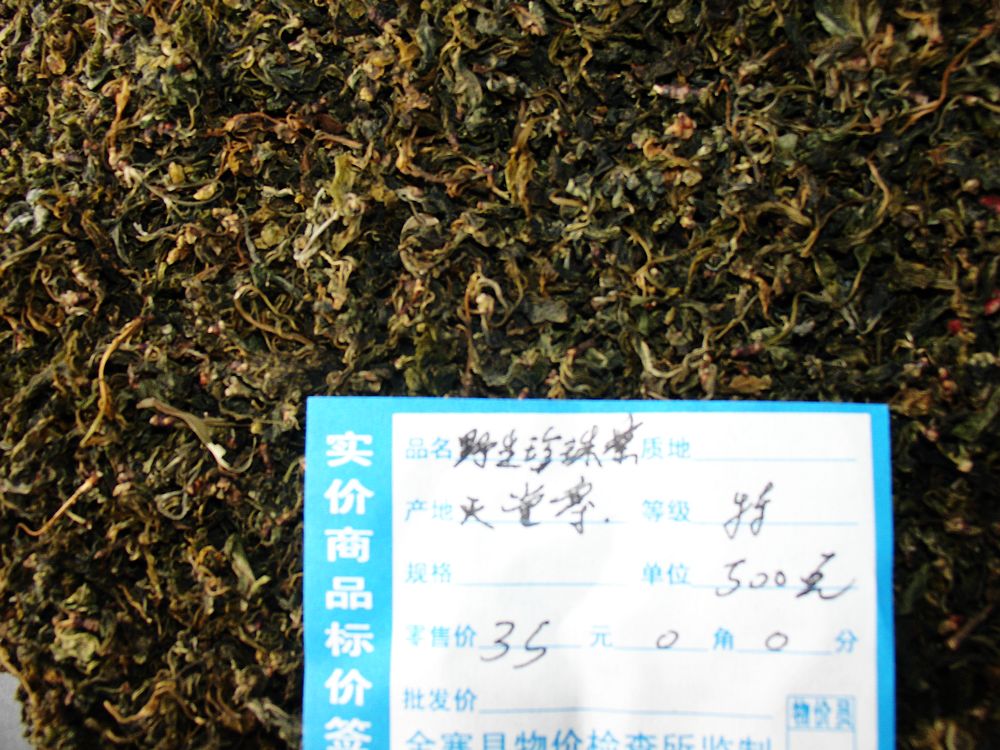 实价商品标价签
品名 野生珍珠菜 质地
产地 天堂寨. 等级 特
规格 单位 500克
零售价 35 元 0 角 0 分
批发价
物价员
金寨县物价检查所监制